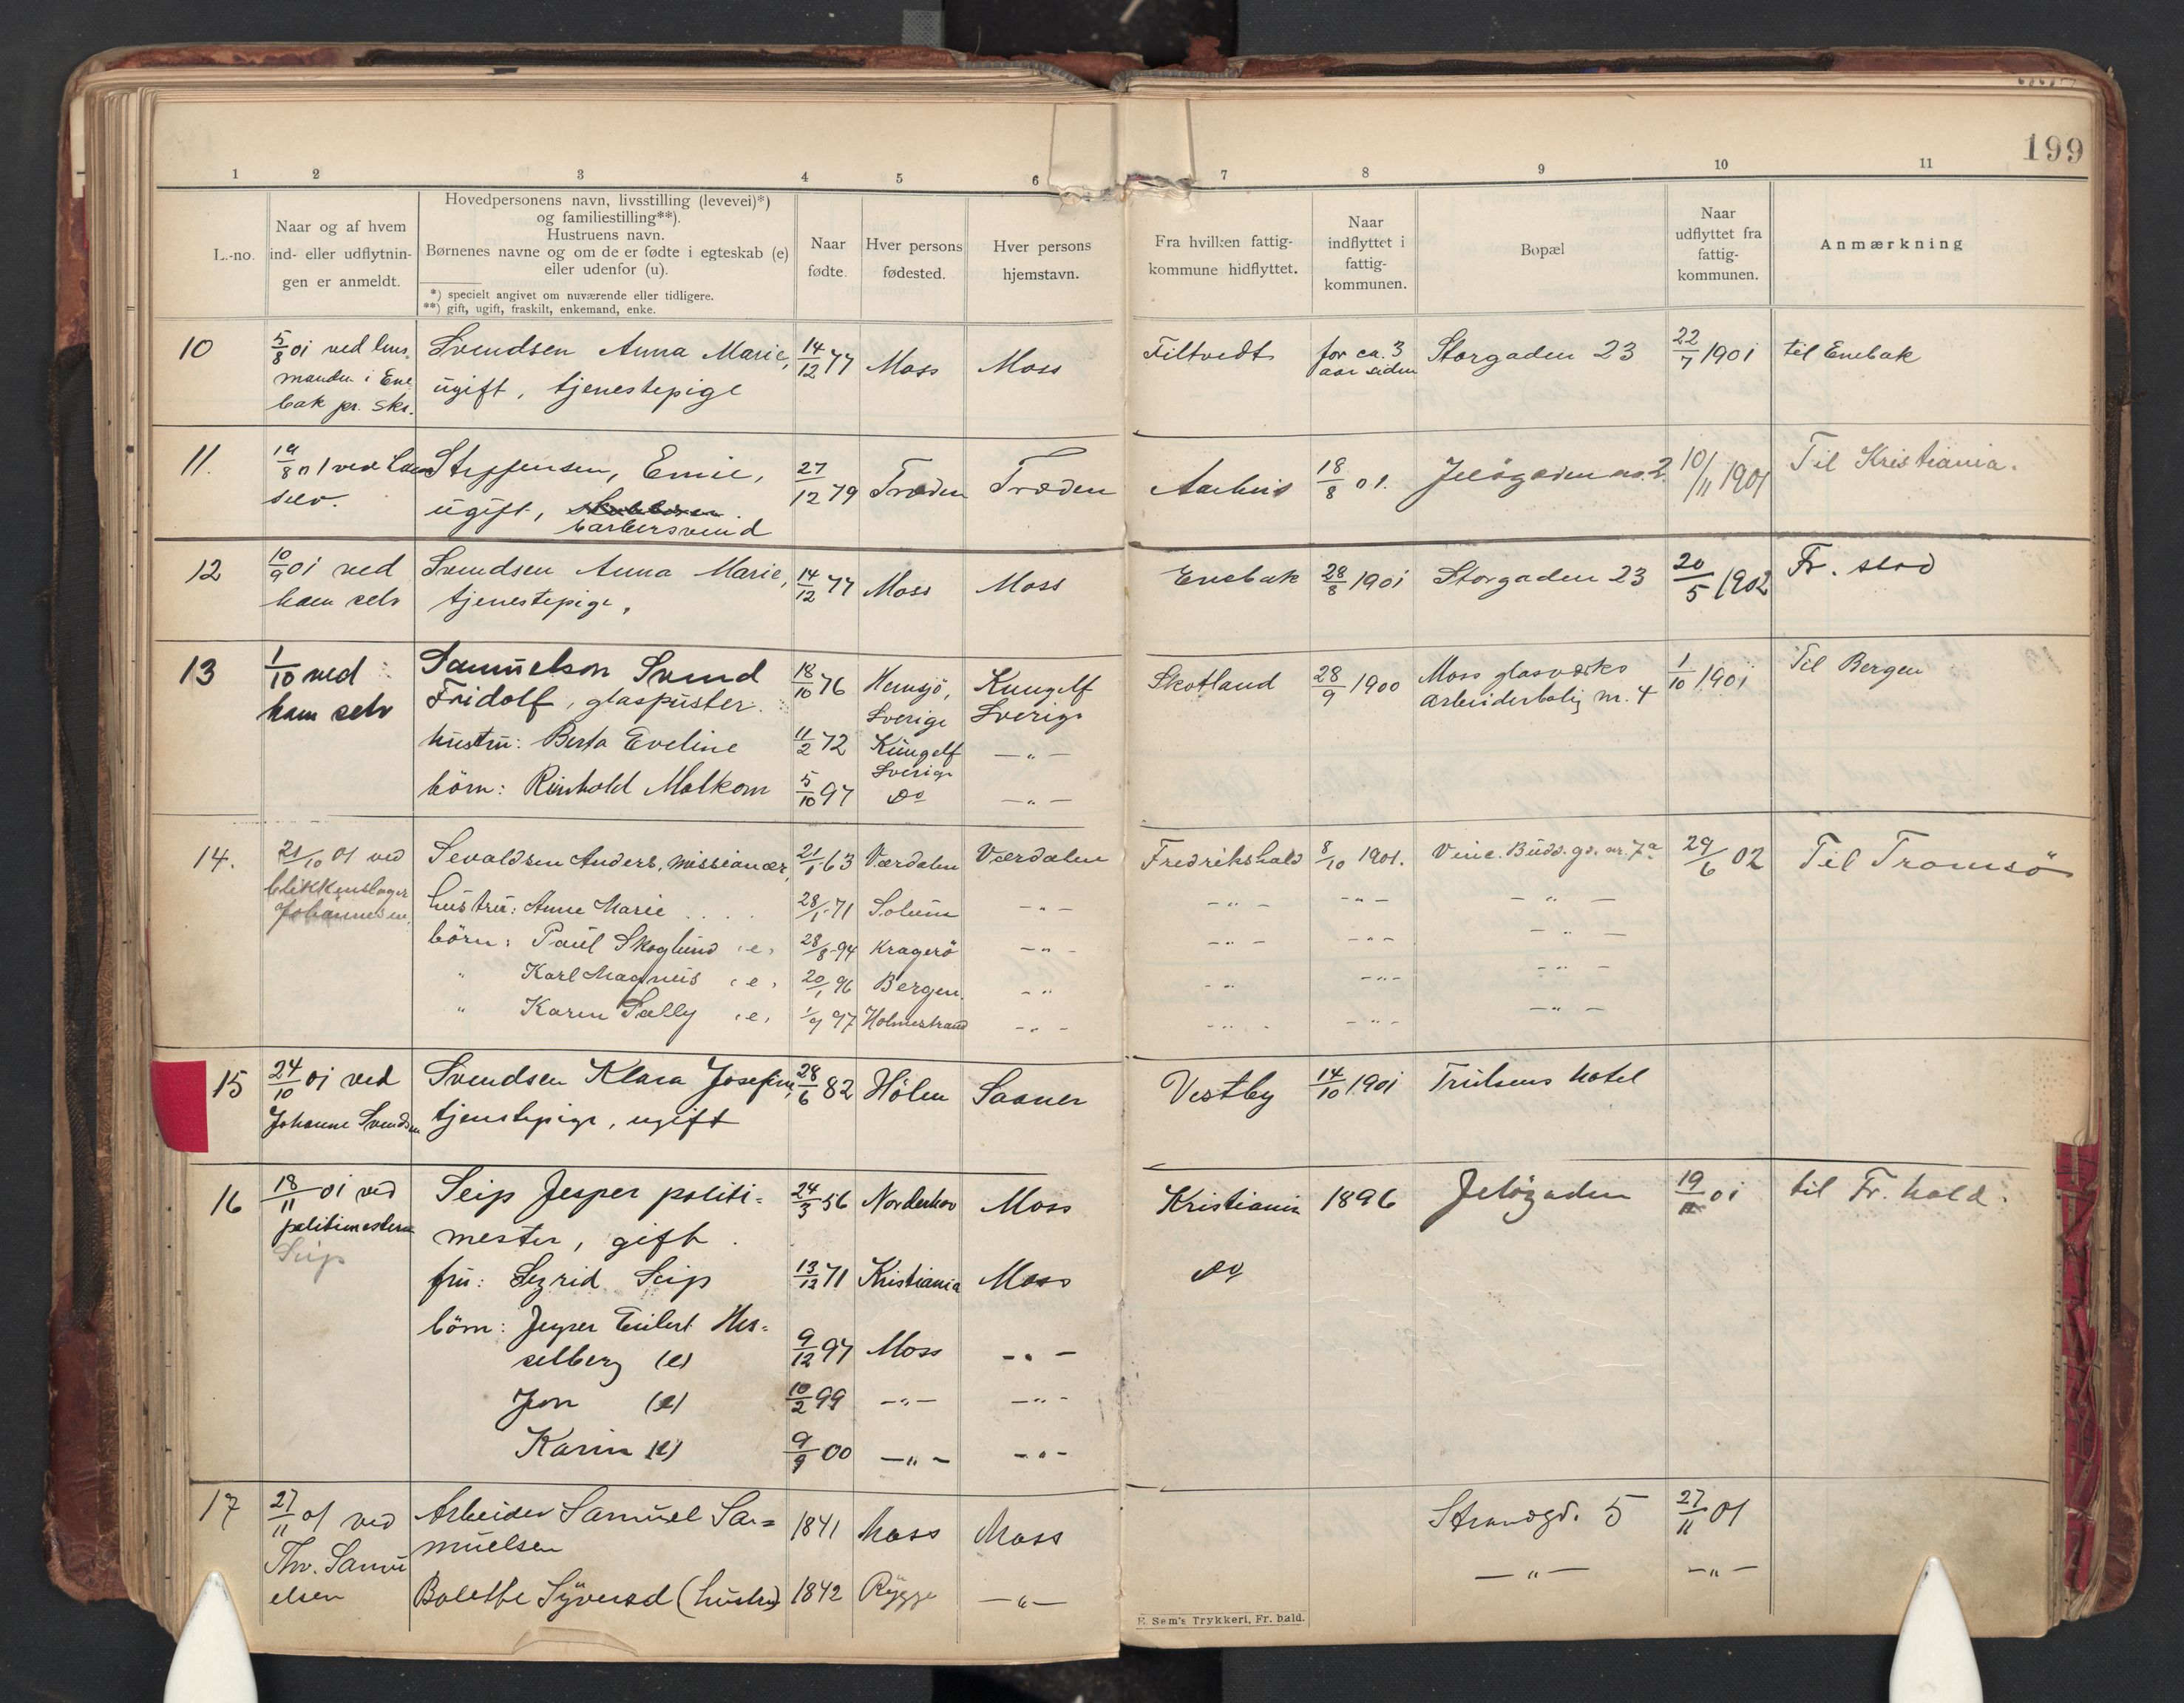 199
1 2 3 4 5 6 7 8 9 10 11
L.-no.
Naar og af hvem
ind- eller udflytnin-
gen er anmeldt.
Hovedpersonens navn, livsstilling (levevei)*)
og familiestilling**).
Hustruens navn.
Børnenes navne og om de er fødte i egteskab (e)
eller udenfor (u).
*) specielt angivet om nuværende eller tidligere.
**) gift, ugift, fraskilt, enkemand, enke.
Naar
fødte.
Hver persons
fødested.
Hver persons
hjemstavn.
Fra hvilken fattig-
kommune hidflyttet.
Naar
indflyttet i
fattig-
kommunen.
Bopæl
Naar
udflyttet fra
fattig-
kommunen.
Anmærkning
10
5/8 01 ved lens
manden i Ene
bak pr. skr.
Svendsen Anna Marie,
ugift, tjenestepige
14/12 77 Moss Moss
Filtvedt
for ca. 3
aar siden
Storgaden 23
22/7 1901
til Enebak
11.
19/8 01 ved ham
selv.
Steffensen, Emil,
ugift,
barbersvend
27/12 79 Træden Træden
Aarhus
18/8 01.
Jeløgaden no. 2.
10/11 1901
Til Kristiania.
12
10/9 01 ved
ham selv
Svendsen Anna Marie,
tjenestepige,
14/12 77 Moss Moss
Enebak
28/8 1901
Storgaden 23
20/5 1902
Fr. stad
13
1/10 ved
ham selv
Samuelson Svend
Fridolf, glaspuster.
18/10 76
Hemsjö,
Sverige
Kungelf
Sverige
hustru: Berta Eveline
11/2 72
Kungelf
Sverige
—"—
børn: Reinhold Malkom
5/10 97 do —"—
Skotland
28/9 1900
Moss glasværks
arbeiderbolig nr. 4
1/10 1901
Til Bergen
14.
21/10 01 ved
blikkenslager
Johannesen.
Sevaldsen Anders, missionær,
21/1 63 Værdalen Værdalen
hustru: Anne Marie . . . .
28/1 71 Solum —"—
børn: Paul Skoglund (e)
28/8 94 Kragerö —"—
" Karl Magnus (e)
20/1 96 Bergen. —"
" Karen Sally (e)
1/9 97 Holmestrand —"—
Fredrikshald 8/10 1901. Vinc. Budd. gd. nr. 7a 29/6 02 Til Tromsö
—"— —"— —"—
—"— —"— —"—
—"— —"— —"—
—"— —"— —"—
15
24/10 01 ved
Johanne Svendsen
Svendsen Klara Josefine,
tjenstepige, ugift
28/6 82 Hölen Saaner
Vestby
14/10 1901
Trulsens hotel
16
18/11 01 ved
politimesteren
Seip
Seip Jesper politi=
mester, gift.
24/3 56 Norderhov Moss
fru: Sigrid Seip
13/12 71 Kristiania Moss
børn: Jesper Eilert Hes=
selberg (e)
9/12 97 Moss —"—
Jon (e)
10/2 99 —"— —"—
Karin (e)
9/9 00 —"— —"—
Kristiania 1896 Jeløgaden 19/11 01 til Fr. hald.
do
17
27/11 01 ved
Thv. Samu
elsen
Arbeider Samuel Sa=
muelsen
1841 Moss Moss
Bolethe Syversd (hustru)
1842 Rygge —"—
Strandgd. 5 27/11 01
—"— —"—
E. Sem's Trykkeri, Fr. hald.